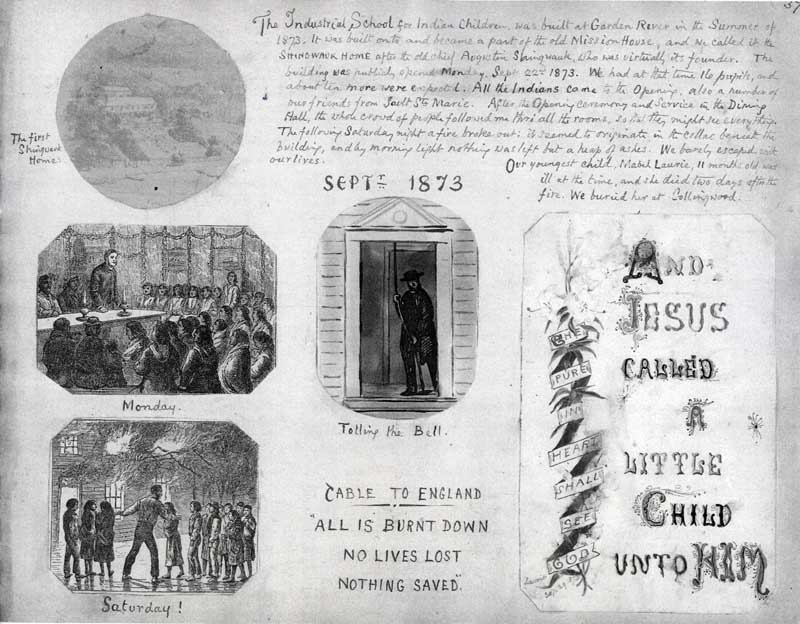 57
The Industrial School for Indian Children, was built at Garden River in the Summer of
1873. It was built onto and became a part of the old Mission House, and we called it the
SHINGWAUK HOME after the old chief Augustin Shingwauk, who was virtually its founder. The
building was publicly opened Monday, Sept. 22nd 1873. We had at that time 16 pupils, and
about ten more were expected. All the Indians came to the Opening, also a number of
our friends from Sault Ste Marie. After the Opening ceremony and service in the Dining
Hall, the whole crowd of people followed me thro' all the rooms, so that they might see everything.
The following Saturday night a fire broke out: it seemed to originate in the cellar beneath the
building, and by morning light nothing was left but a heap of ashes. We barely escaped with
our lives.
Our youngest child, Mabel Laurie, 11 months old was
ill at the time, and she died two days after the
fire. We buried her at Collingwood.
The first
Shingwauk
Home.
SEPTR 1873
Monday.
Tolling the Bell.
Saturday!
CABLE TO ENGLAND
"ALL IS BURNT DOWN
NO LIVES LOST
NOTHING SAVED".
THE
PURE
IN
HEART
SHALL
SEE
GOD
AND
JESUS
CALLED
A
LITTLE
CHILD
UNTO HIM